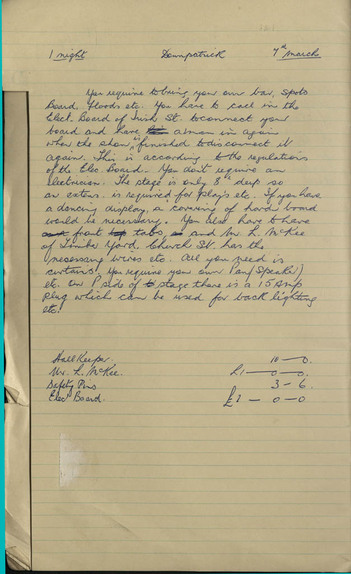 1 night Downpatrick 7th March
You require to bring your own bar, spots
Board, floods etc. You have to call in the
Elect. Board of Irish St. to connect your
board and have a man in again
when the show is finished to disconnect it
again. This is according to the regulations
of the Elec. Board. You don't require an
electrician. The stage is only 8' deep so
an extens. is required for plays etc. If you have
a dancing display, a covering of hard board
would be necessary. You also have to have
front tabs, and Mr. L. McKee
of Timber Yard, Church St. has the
necessary wires etc. All you need is
curtains. You require your own Pan/Speaker
etc. On P side of stage there is a 15 amp
plug which can be used for back lighting
etc.
Hall Keeper. 10 — 0.
Mr. L. McKee. £1 — 0 — 0.
Safety Pins 3 — 6.
Elec Board. — 0 — 0